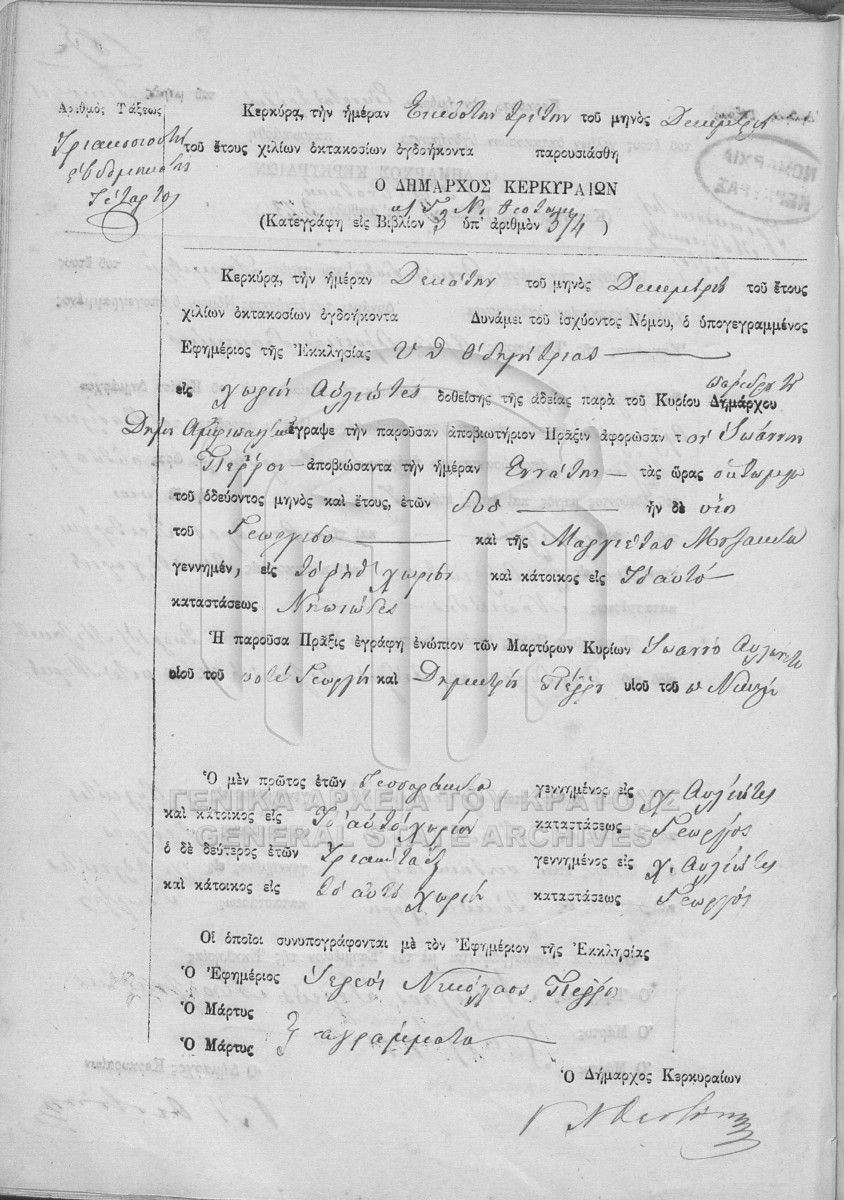 Ἀριθμὸς Τάξεως
Τριακοσιοστὴ
ἑβδομηκοστὴ
Τετάρτη
ΝΟΜΑΡΧΙΑ
ΚΕΡΚΥΡΑΣ
Κερκύρα, τὴν ἡμέραν Εικοστην τρίτην τοῦ μηνὸς Δεκεμβρίου
τοῦ ἔτους χιλίων ὀκτακοσίων ὀγδοήκοντα παρουσιάσθη
Ο ΔΗΜΑΡΧΟΣ ΚΕΡΚΥΡΑΙΩΝ
(Κατεγράφη εἰς Βιβλίον 3 ὑπ' ἀριθμὸν 374 )
Κερκύρα, τὴν ἡμέραν Δεκάτην τοῦ μηνὸς Δεκεμβρίου τοῦ ἔτους
χιλίων ὀκτακοσίων ὀγδοήκοντα Δυνάμει τοῦ ἰσχύοντος Νόμου, ὁ ὑπογεγραμμένος
Ἐφημέριος τῆς Ἐκκλησίας Υ Θ Οδηγήτριας
εἰς χωρίον Αυλιώτες δοθείσης τῆς ἀδείας παρὰ τοῦ Κυρίου Δημάρχου παρέδρου τοῦ
Δήμου ἔγραψε τὴν παροῦσαν ἀποβιωτήριον Πρᾶξιν ἀφορῶσαν τον Ιωάννην
Πέρρον ἀποβιώσαντα τὴν ἡμέραν Εννάτην τὰς ὥρας οκτω
τοῦ ὁδεύοντος μηνὸς καὶ ἔτους, ἐτῶν δυο ἦν δὲ υἱὸς
τοῦ Γεωργίου καὶ τῆς Μαργιέτας
γεννημέν, εἰς τὸ ρηθ χωρίον καὶ κάτοικος εἰς Τὸ αυτό
καταστάσεως Νηπιώδες
Ἡ παροῦσα Πρᾶξις ἐγράφη ἐνώπιον τῶν Μαρτύρων Κυρίων Ιωάννου
υἱοῦ τοῦ ποτέ Γεωργίου καὶ Δημητρίου Πέρρου υἱοῦ τοῦ π Νικολ
Ὁ μὲν πρῶτος ἐτῶν Τεσσαράκοντα γεννημένος εἰς χ. Αυλιώτες
ΓΕΝΙΚΑ ΑΡΧΕΙΑ ΤΟΥ ΚΡΑΤΟΥΣ
καὶ κάτοικος εἰς Τὸ αυτό χωρίον καταστάσεως Γεωργός
GENERAL STATE ARCHIVES
ὁ δὲ δεύτερος ἐτῶν Τριακοντα γεννημένος εἰς χ. Αυλιώτες
καὶ κάτοικος εἰς τὸ αυτό χωρίον καταστάσεως Γεωργός
Οἱ ὁποῖοι συνυπογράφονται μὲ τὸν Ἐφημέριον τῆς Ἐκκλησίας
Ὁ Ἐφημέριος Ιερεύς Νικόλαος Πέρρος
Ὁ Μάρτυς
Ὁ Μάρτυς } αγράμματοι
Ὁ Δήμαρχος Κερκυραίων